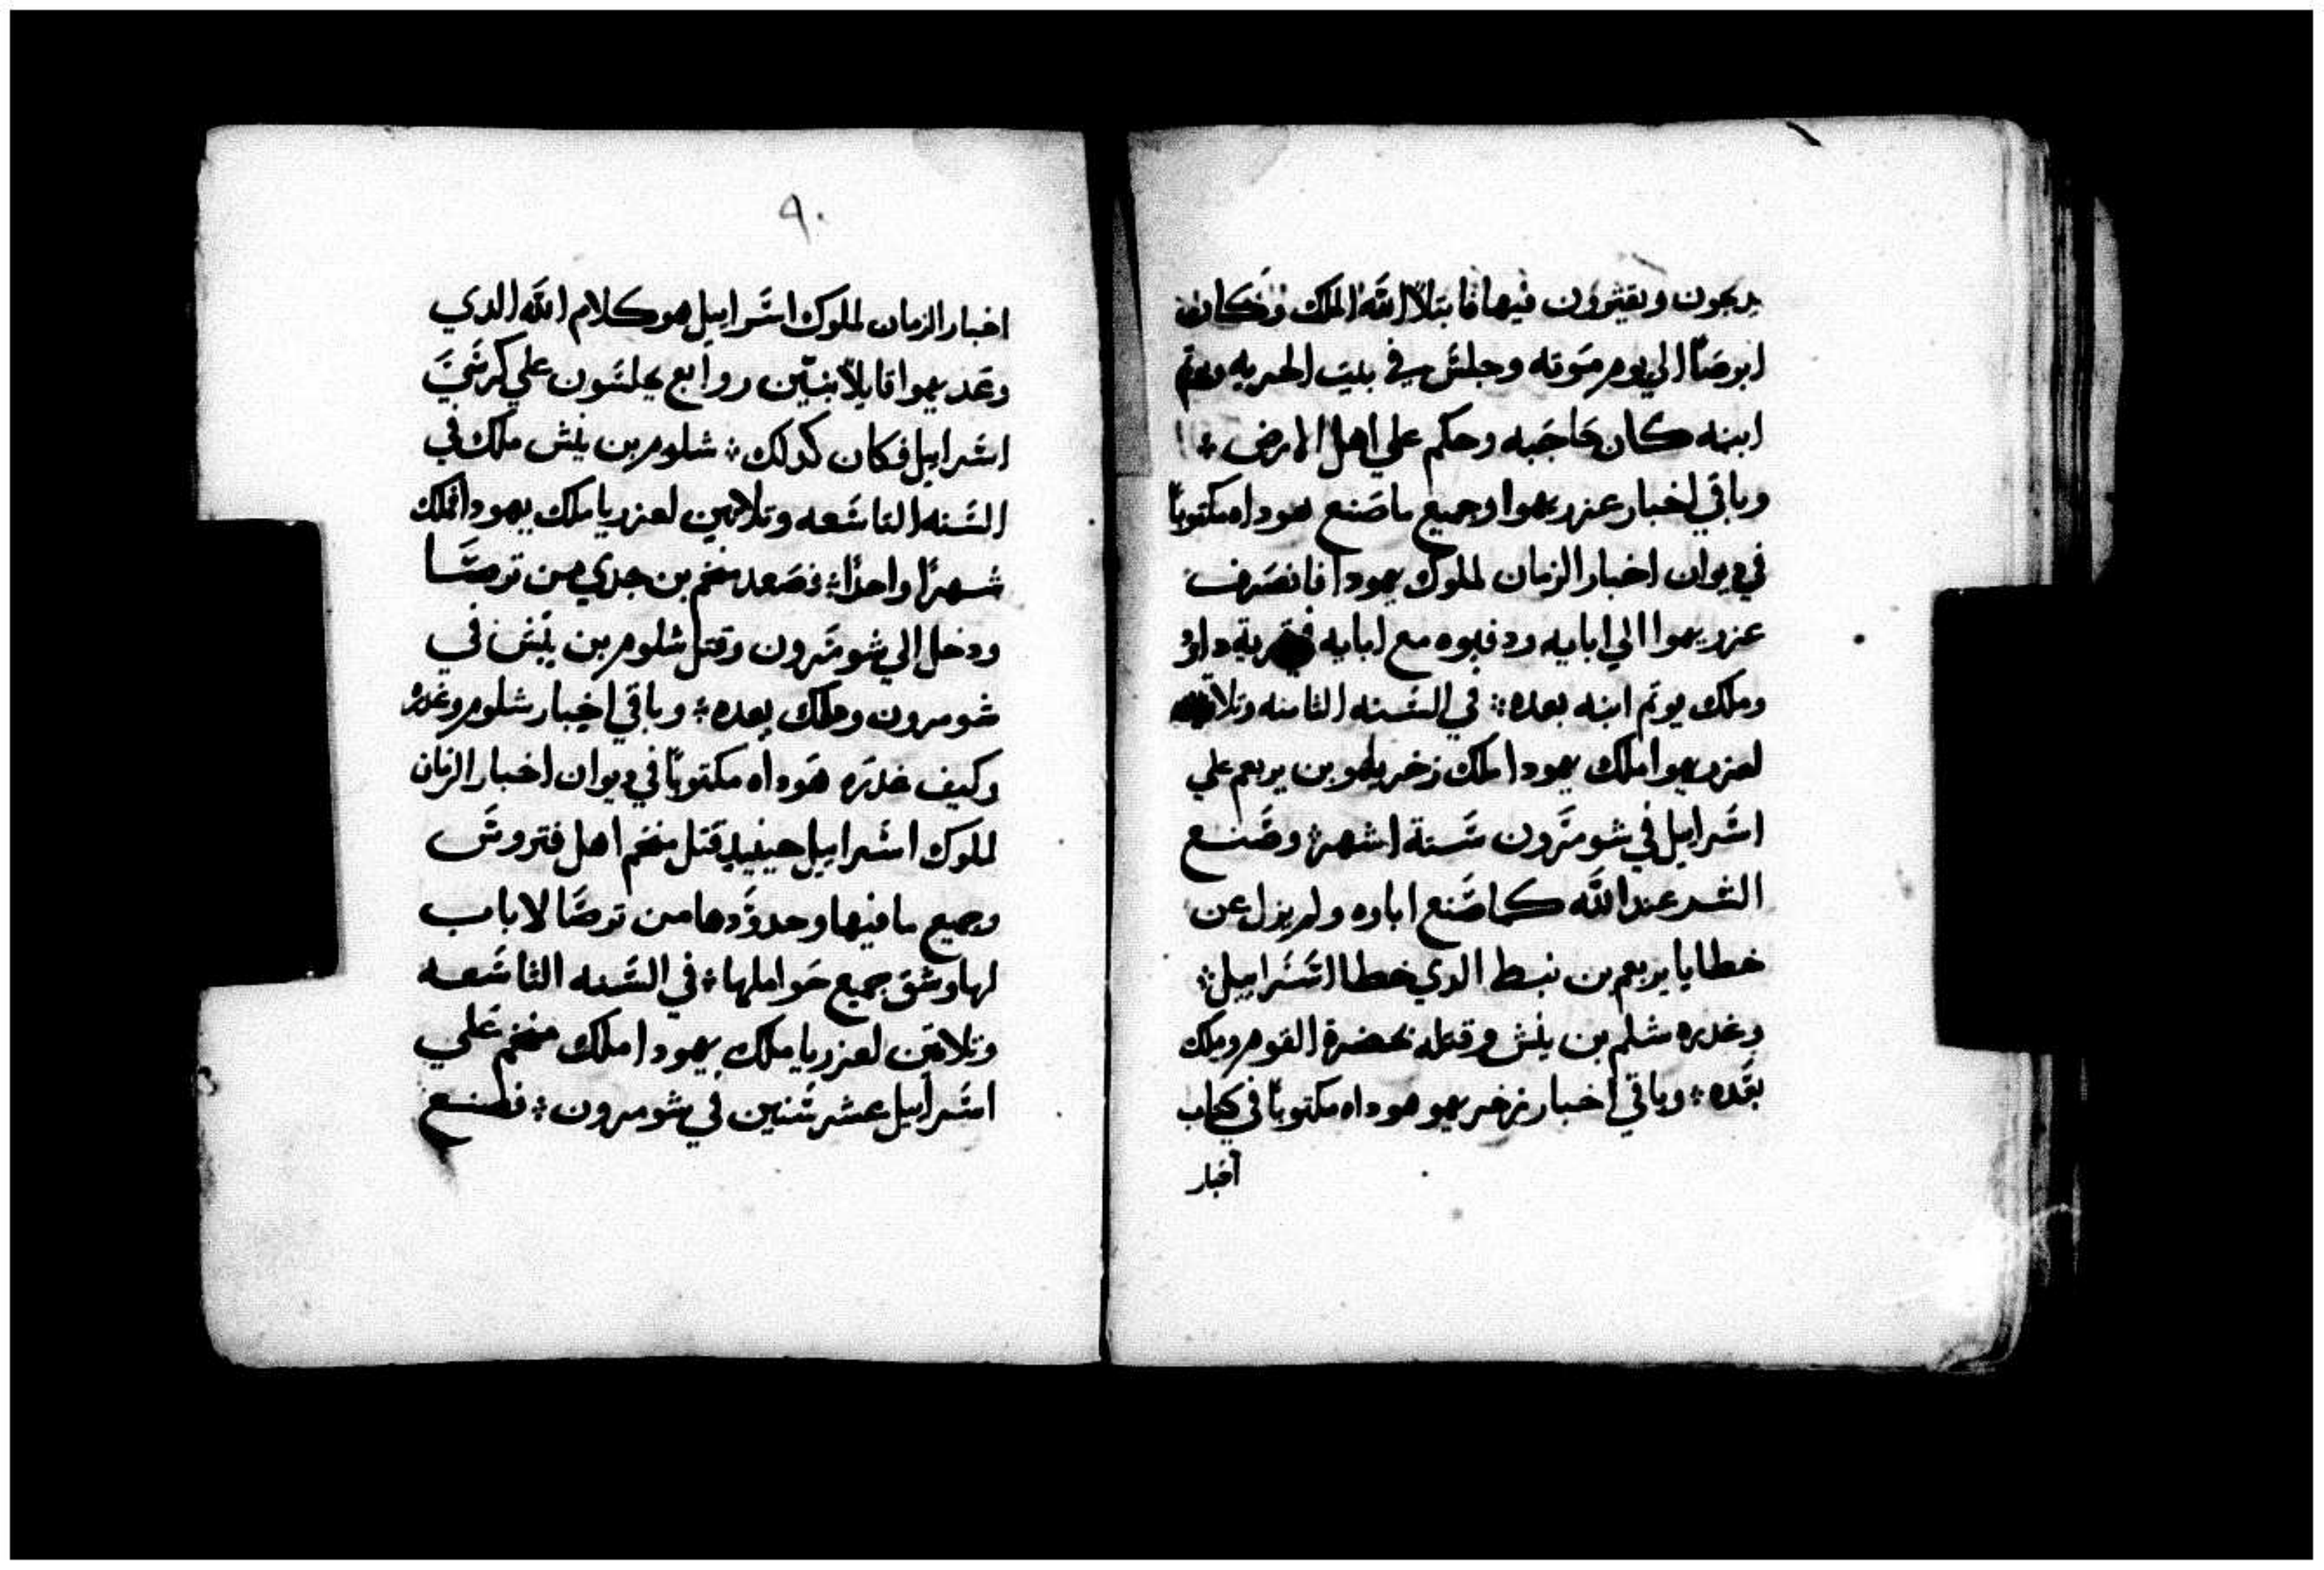 يدبحون ويقترون فيها فابتلا الله الملك وكان
ابرصًا الي يوم موته وجلس في بيت الحريه ويوتم
ابنه كان حاجبه وحكم علي اهل الارض ⁘
وباقي اخبار عزريهوا وجميع ما صنع هوداه مكتوبًا
في ديوان اخبار الزمان لملوك يهودا فانصرف
عزريهوا الي ابايه ودفنوه مع ابايه في قرية داوُ
وملك يوتم ابنه بعده ⁘ في السنه الثامنه وتلاتين
لعزريهوا ملك يهودا ملك زخريهو بن يربعم علي
اسرايل في شومرون ستة اشهر ⁘ وصنع
الشر عند الله كما صنع اباوه ولم يزل عن
خطايا يربعم بن نبط الدي خطا اسرايل ⁘
وغدره شلم بن ينش وقتله بحضرة القوم وملك
بعده ⁘ وباقي اخبار زخريهو هوداه مكتوبًا في كتاب
اخبار
٩٠
اخبار الزمان لملوك اسرايل هو كلام الله الدي
وعد يهوا قايلًا بنين روابع يجلسون علي كرسي
اسرايل فكان كدلك ⁘ شلوم بن ينش ملك في
السنه التاسعه وتلاتين لعزريا ملك يهودا فملك
شهرًا واحدًا ⁘ فصعد منخم بن جدي من ترصا
ودخل الي شومرون وقتل شلوم بن ينش في
شومرون وملك بعده ⁘ وباقي اخبار شلوم وغدره
وكيف غدره هوداه مكتوبًا في ديوان اخبار الزمان
لملوك اسرايل حينيد قتل منخم اهل فتروش
وجميع ما فيها وحدودها من ترصا لا باب
لها وشق جميع حواملها ⁘ في السنه التاسعه
وتلاتين لعزريا ملك يهودا ملك منخم علي
اسرايل عشر سنين في شومرون ⁘ فصنع